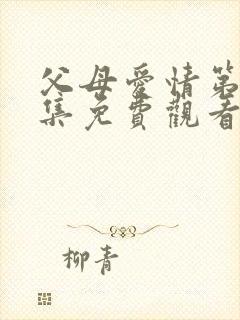 父母愛情第
集免費觀看
柳青